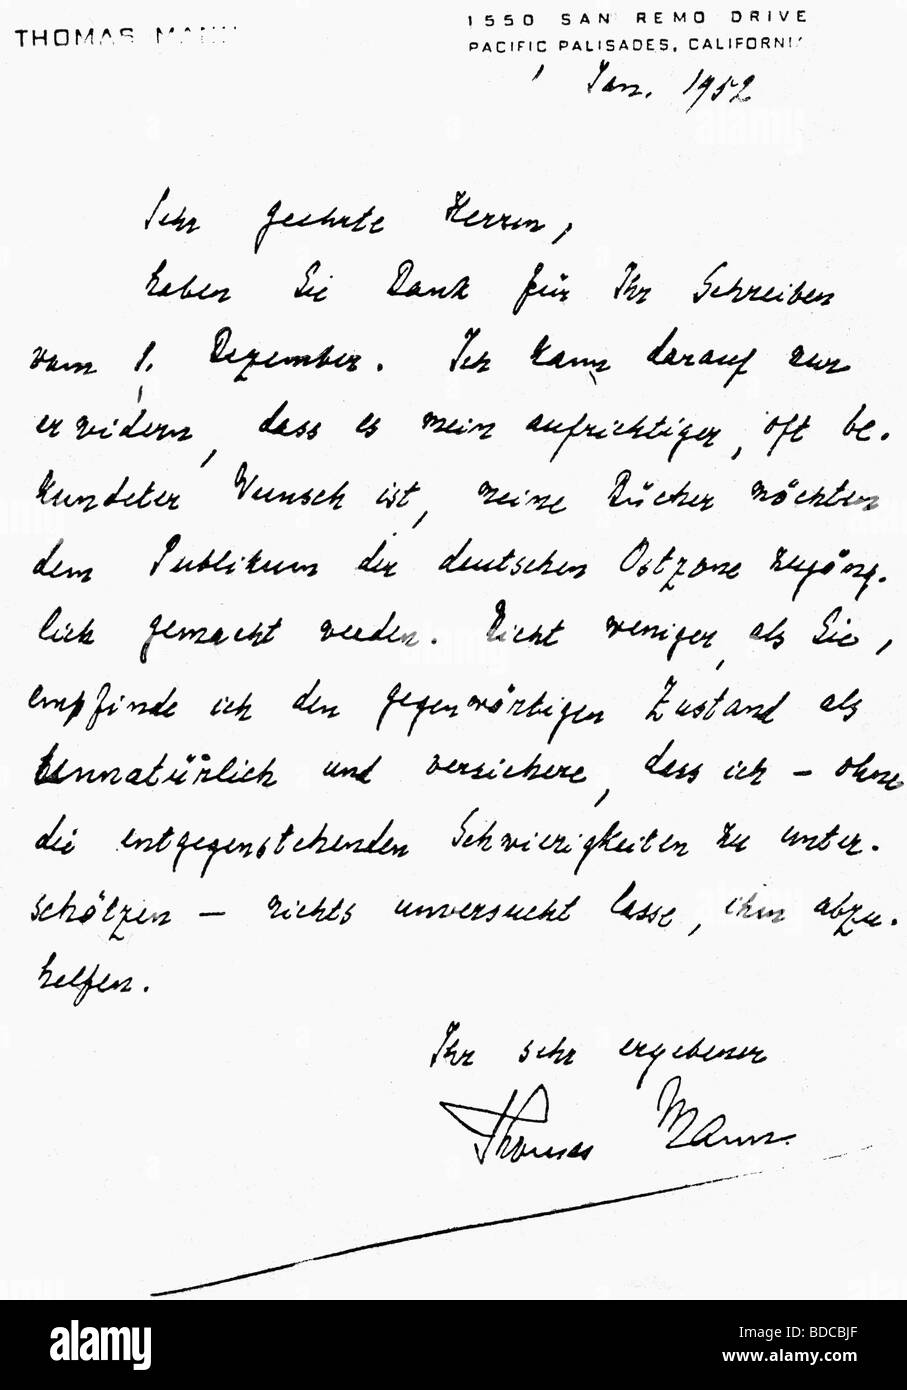 THOMAS MANN
1550 SAN REMO DRIVE
PACIFIC PALISADES, CALIFORNIA
Jan. 1952
Sehr geehrte Herren,
haben Sie Dank für Ihr Schreiben
vom 1. Dezember. Ich kann darauf nur
erwidern, dass es mein aufrichtiger, oft be-
kundeter Wunsch ist, meine Bücher möchten
dem Publikum der deutschen Ostzone zugäng-
lich gemacht werden. Nicht weniger, als Sie,
empfinde ich den gegenwärtigen Zustand als
unnatürlich und versichere, dass ich – ohne
die entgegenstehenden Schwierigkeiten zu unter-
schätzen – nichts unversucht lasse, ihm abzu-
helfen.
Ihr sehr ergebener
Thomas Mann
alamy
Image ID: BDCBJF
www.alamy.com